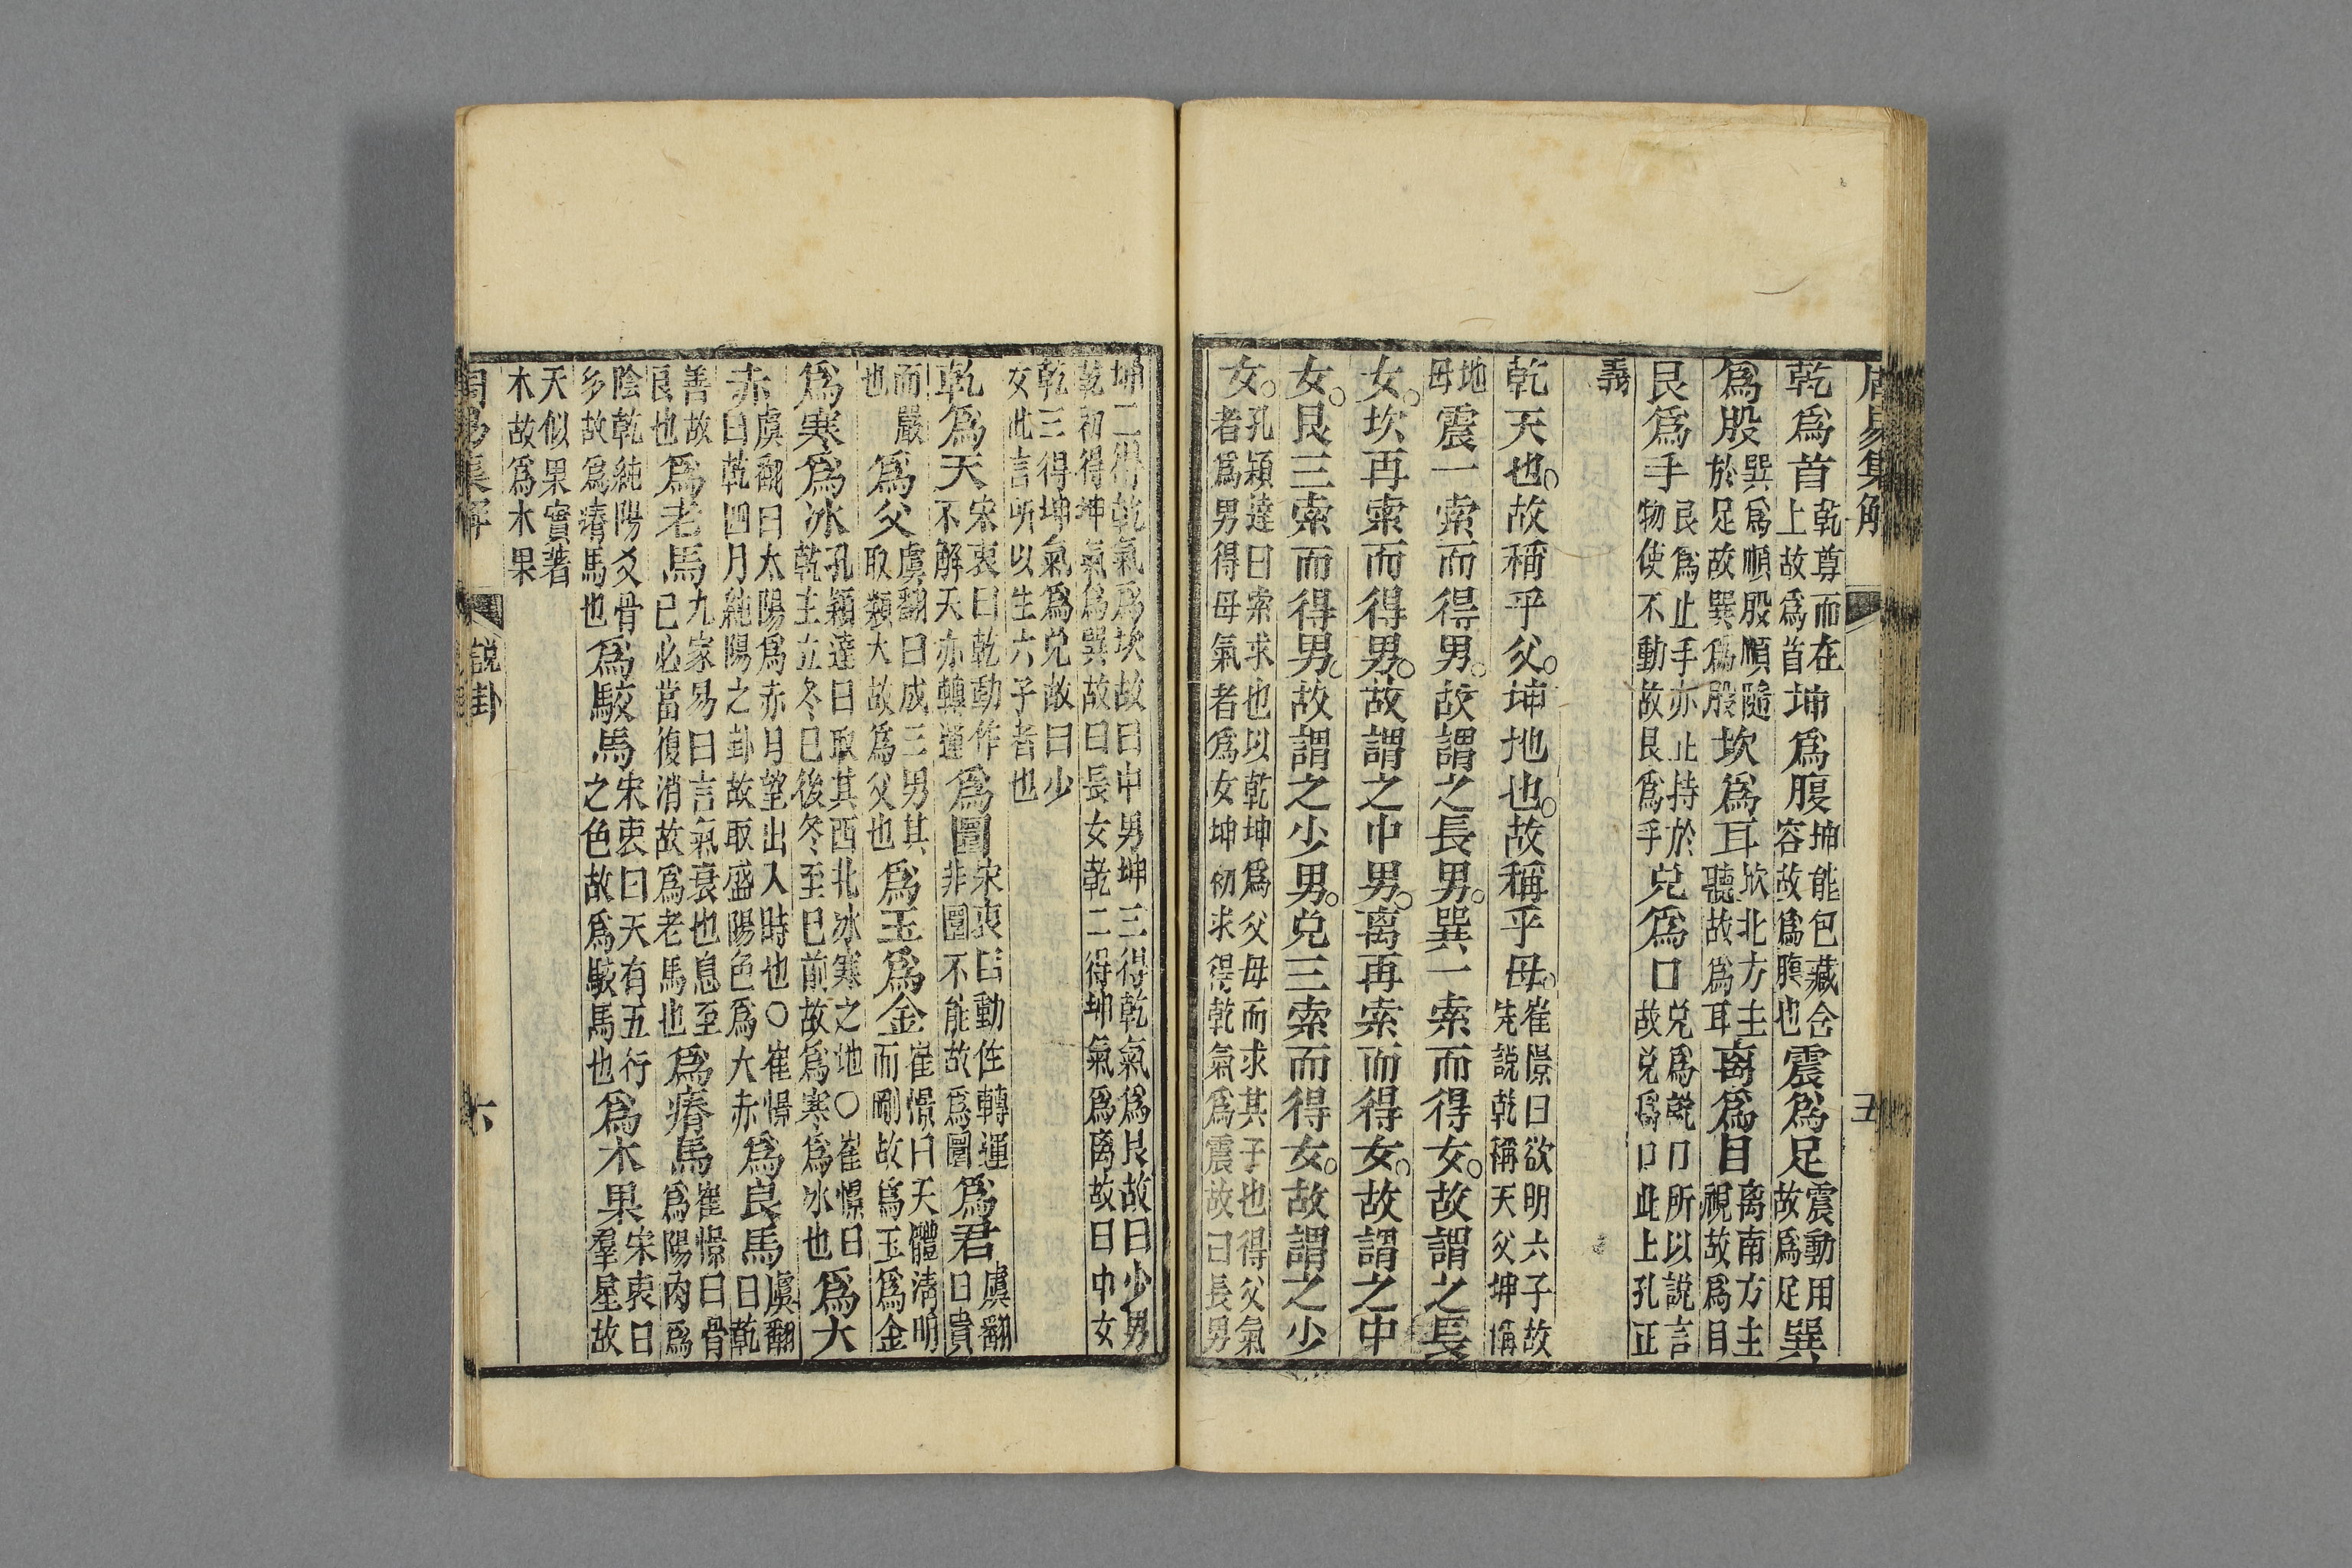 周易集解 五
乾爲首乾尊而在上故爲首坤爲腹坤能包藏含容故爲腹也震爲足震動用故爲足巽
爲股巽爲順股順隨於足故巽爲股坎爲耳坎北方主聽故爲耳离爲目离南方主視故爲目
艮爲手艮爲止手亦止持於物使不動故艮爲手兌爲口兌爲說口所以說言故兌爲口此上孔正
義
乾天也故稱乎父坤地也故稱乎母崔憬曰欲明六子故先說乾稱天父坤稱
地母震一索而得男故謂之長男巽一索而得女故謂之長
女坎再索而得男故謂之中男离再索而得女故謂之中
女艮三索而得男故謂之少男兌三索而得女故謂之少
女孔穎達曰索求也以乾坤爲父母而求其子也得父氣者爲男得母氣者爲女坤初求得乾氣爲震故曰長男
坤二得乾氣爲坎故曰中男坤三得乾氣爲艮故曰少男乾初得坤氣爲巽故曰長女乾二得坤氣爲离故曰中女
乾三得坤氣爲兌故曰少女此言所以生六子者也
乾爲天宋衷曰乾動作不解天亦轉運爲圜宋衷曰動作轉運非圜不能故爲圜爲君虞翻曰貴
而嚴也爲父虞翻曰成三男其取類大故爲父也爲玉爲金崔憬曰天體淸明而剛故爲玉爲金
爲寒爲冰孔穎達曰取其西北冰寒之地○崔憬曰乾主立冬已後冬至已前故爲寒爲冰也爲大
赤虞翻曰太陽爲赤月望出入時也○崔憬曰乾四月純陽之卦故取盛陽色爲大赤爲良馬虞翻曰乾
善故良也爲老馬九家易曰言氣衰也息至已必當復消故爲老馬也爲瘠馬崔憬曰骨爲陽肉爲
陰乾純陽爻骨多故爲瘠馬也爲駮馬宋衷曰天有五行之色故爲駮馬也爲木果宋衷曰羣星故
天似果實著木故爲木果
周易集解 說卦 六